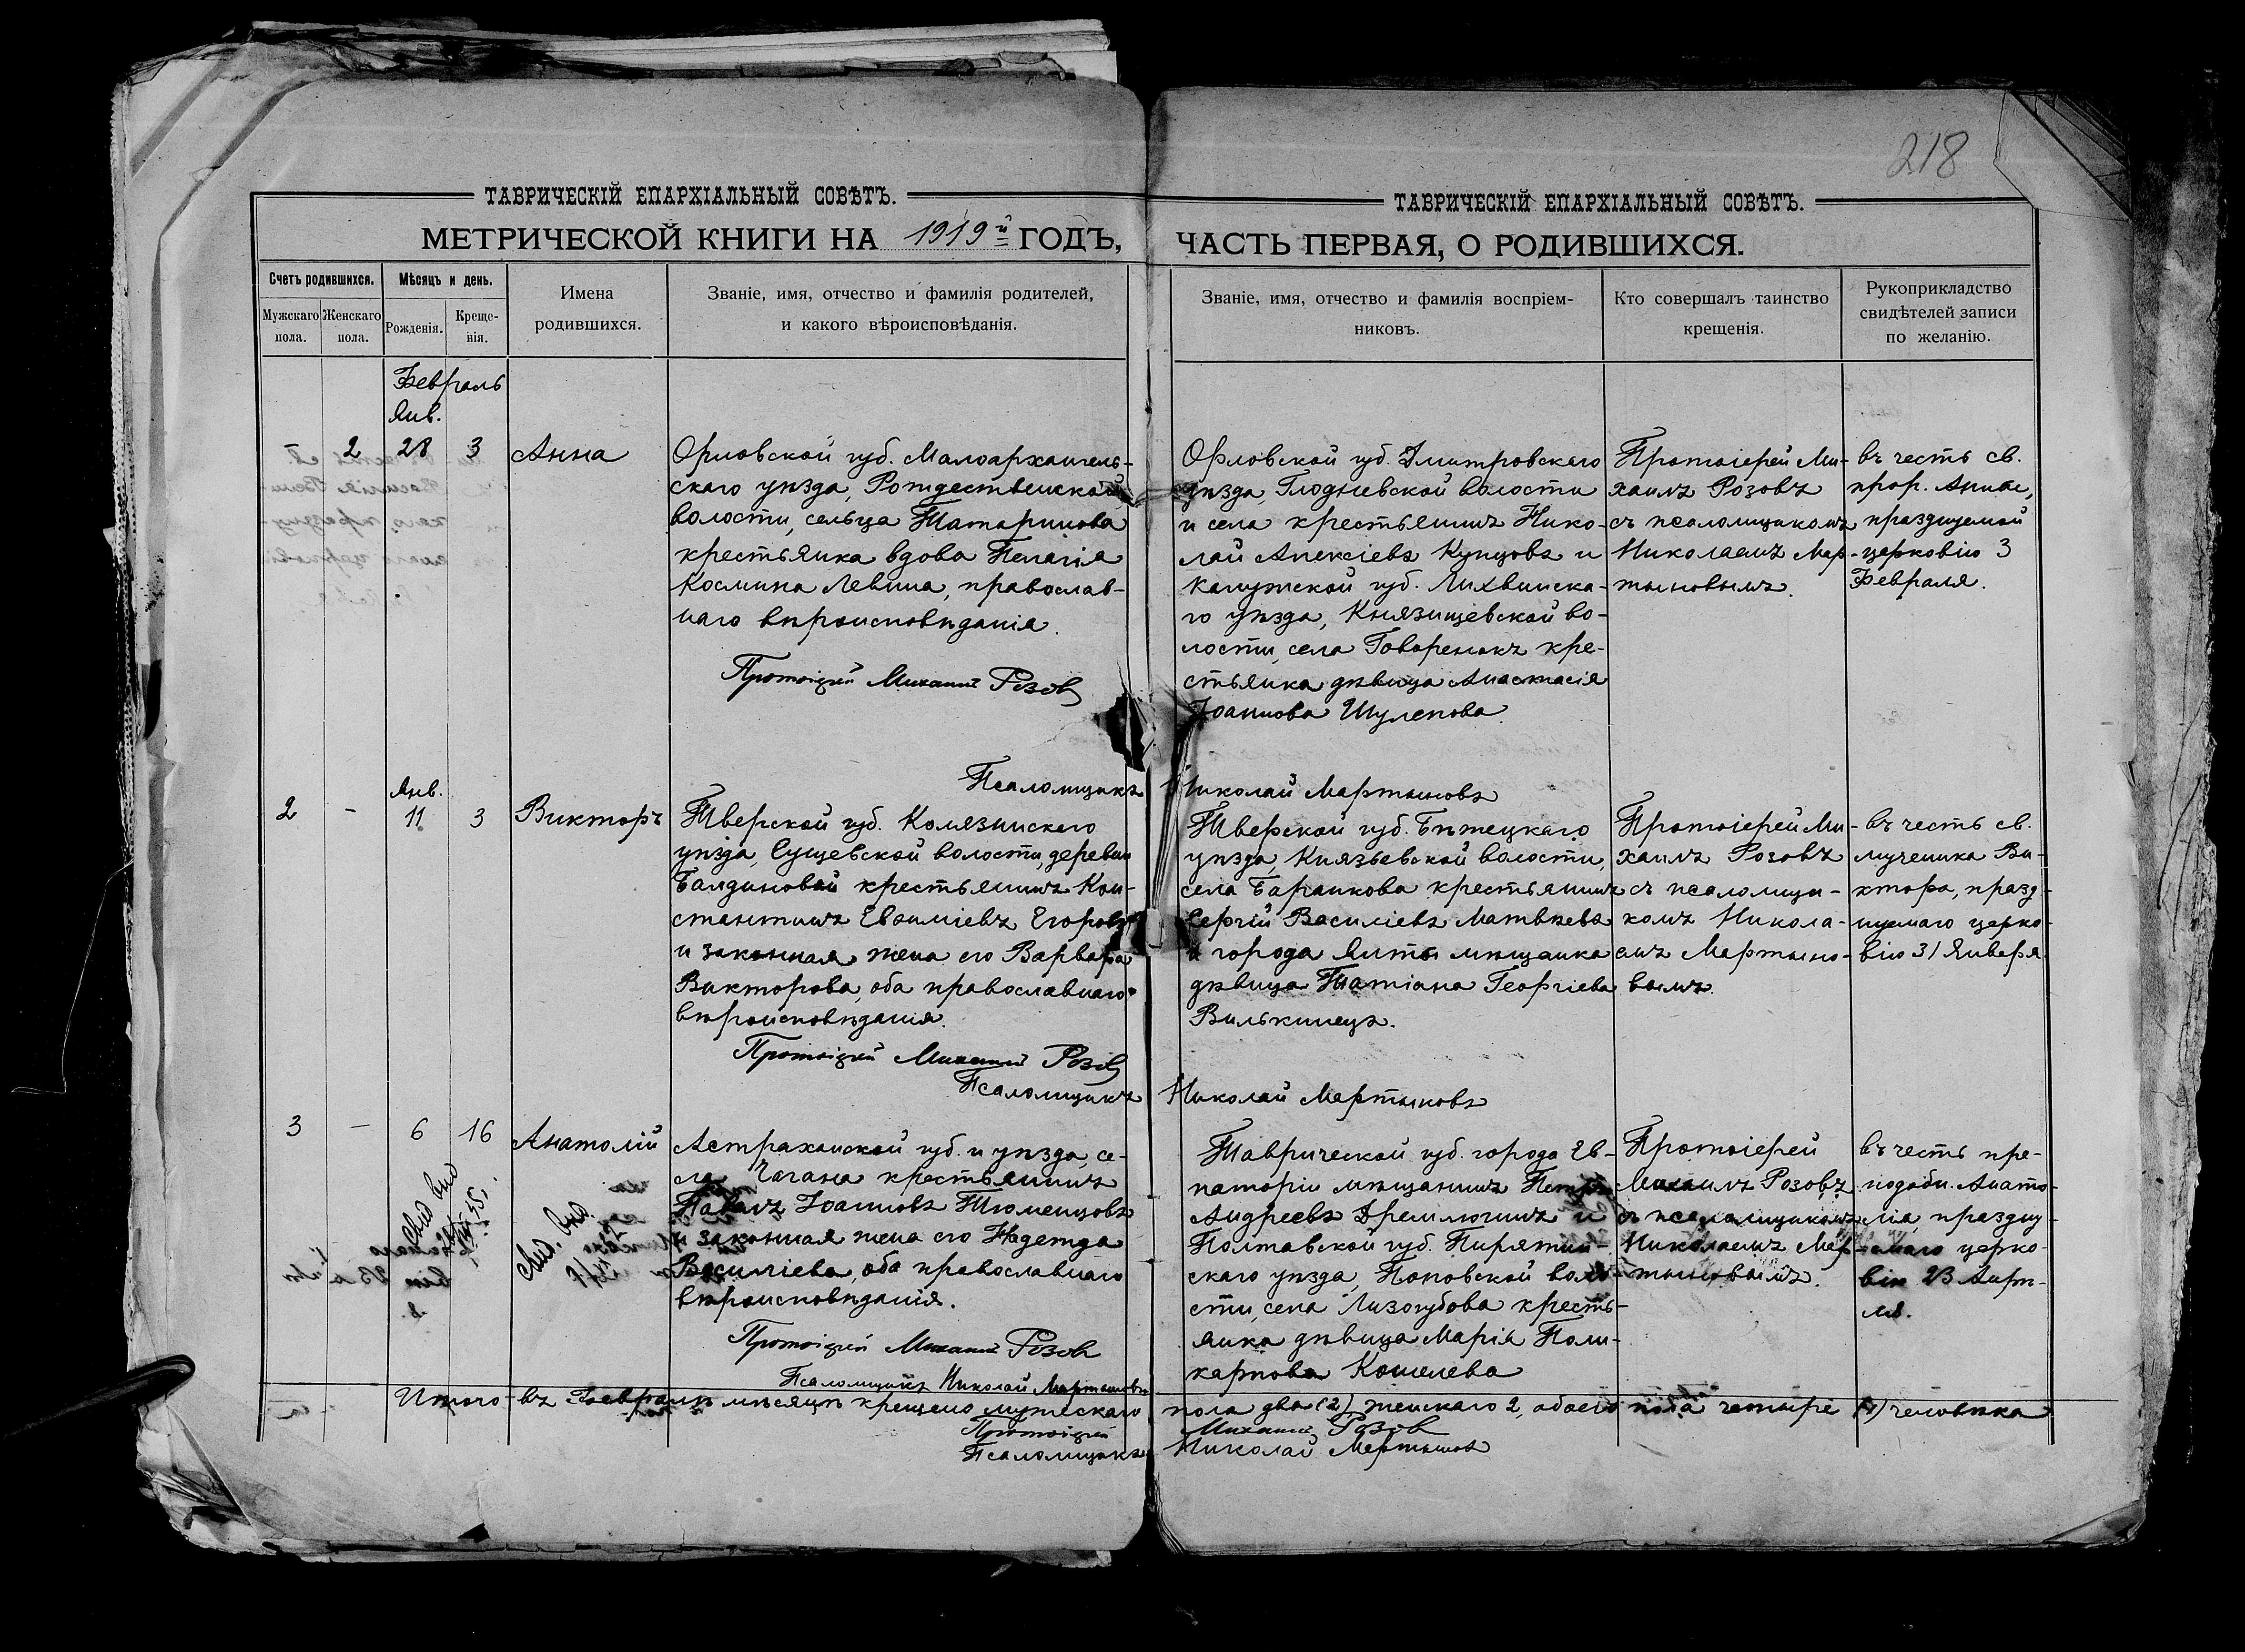 218
ТАВРИЧЕСКІЙ ЕПАРХІАЛЬНЫЙ СОВѢТЪ.
МЕТРИЧЕСКОЙ КНИГИ НА 1919й ГОДЪ,
Счетъ родившихся.
Мѣсяцъ и день.
Мужскаго пола.
Женскаго пола.
Рожденія.
Креще-
нія.
Имена
родившихся.
Званіе, имя, отчество и фамилія родителей,
и какого вѣроисповѣданія.
ТАВРИЧЕСКІЙ ЕПАРХІАЛЬНЫЙ СОВѢТЪ.
ЧАСТЬ ПЕРВАЯ, О РОДИВШИХСЯ.
Званіе, имя, отчество и фамилія воспріем-
никовъ.
Кто совершалъ таинство
крещенія.
Рукоприкладство
свидѣтелей записи
по желанію.
Февраль
Янв.
2 28 3 Анна
Орловской губ. Малоархангель-
скаго уѣзда, Рождественской
волости, сельца Татаринова
крестьянка вдова Пелагія
Космина Левина, православ-
наго вѣроисповѣданія.
Протоіерей Михаилъ Розовъ
Орловской губ. Дмитровскаго
уѣзда, Глодневской волости
и села крестьянинъ Нико-
лай Алексіевъ Купцовъ и
Калужской губ. Лихвинска-
го уѣзда, Князищевской во-
лости, села Говоренокъ кре-
стьянка дѣвица Анастасія
Іоаннова Шулепова.
Протоіерей Ми-
хаилъ Розовъ
съ псаломщикомъ
Николаемъ Мар-
тыновымъ.
въ честь св.
прор. Анны,
празднуемой
церковію 3
Февраля.
Псаломщикъ Николай Мартыновъ
Янв.
2 - 11 3 Викторъ
Тверской губ. Колязинскаго
уѣзда, Сущевской волости, деревни
Балдиновой крестьянинъ Кон-
стантинъ Евѳиміевъ Егоровъ
и законная жена его Варвара
Викторова, оба православнаго
вѣроисповѣданія.
Протоіерей Михаилъ Розовъ
Тверской губ. Бѣжецкаго
уѣзда, Князьевской волости,
села Баранкова крестьянинъ
Сергій Василіевъ Матвѣевъ
и города Ялты мѣщанка
дѣвица Татіана Георгіева
Вилькинецъ.
Протоіерей Ми-
хаилъ Розовъ
съ псаломщи-
комъ Никола-
емъ Мартыно-
вымъ.
въ честь св.
мученика Ви-
ктора, празд-
нуемаго церко-
вію 31 Января
Псаломщикъ Николай Мартыновъ
3 - 6 16 Анатолій
Астраханской губ. и уѣзда, се-
ла Чагана крестьянинъ
Павелъ Іоанновъ Тюменцовъ
и законная жена его Надежда
Василіева, оба православнаго
вѣроисповѣданія.
Протоіерей Михаилъ Розовъ
Псаломщикъ Николай Мартыновъ
Таврической губ. города Ев-
паторіи мѣщанинъ Петръ
Андреевъ Дремлюгинъ и
Полтавской губ. Пирятин-
скаго уѣзда, Поповской воло-
сти, села Лизогубова кресть-
янка дѣвица Марія Поли-
карпова Кошелева
Протоіерей
Михаилъ Розовъ
съ псаломщикомъ
Николаемъ Мар-
тыновымъ.
въ честь пре-
подобн. Анато-
лія, праздну-
емаго церко-
вію 23 Апрѣ-
ля.
Итого въ Февралѣ мѣсяцѣ крещено мужескаго пола два (2), женскаго 2, обоего пола четыре (4) человѣка
Протоіерей Михаилъ Розовъ
Псаломщикъ Николай Мартыновъ